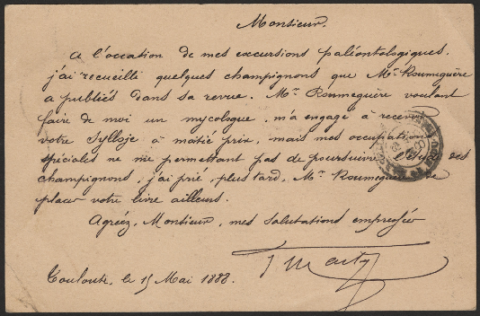 Monsieur,
A l'occation de mes excursions paléontologiques,
j'ai recueilli quelques champignons que Mr. Roumeguère
a publiés dans sa revue. Mr. Roumeguère voulant
faire de moi un mycologue, m'a engagé à
votre Sylloje à moitié prix, mais mes
spéciales ne me permettant pas de poursuivre des
champignons, j'ai prié, plus tard, Mr. de
placer votre livre ailleurs.
Agréez, Monsieur, mes salutations empressées
Toulouse, le 15 Mai 1888.